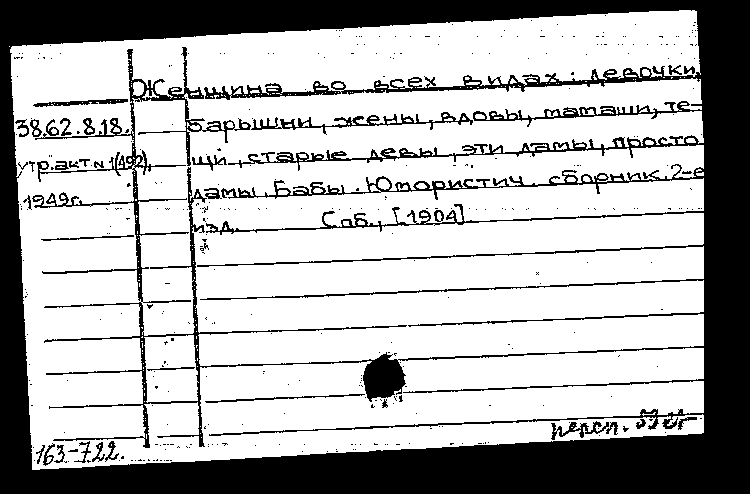 Женщина во всех видах: девочки,
38.62.8.18. барышни, жены, вдовы, мамаши, те-
утр. акт N 1(492), щи, старые девы, эти дамы, просто
1949г. дамы. Бабы. Юмористич. сборник. 2-е
изд. Спб., [1904]
163-722. переп.